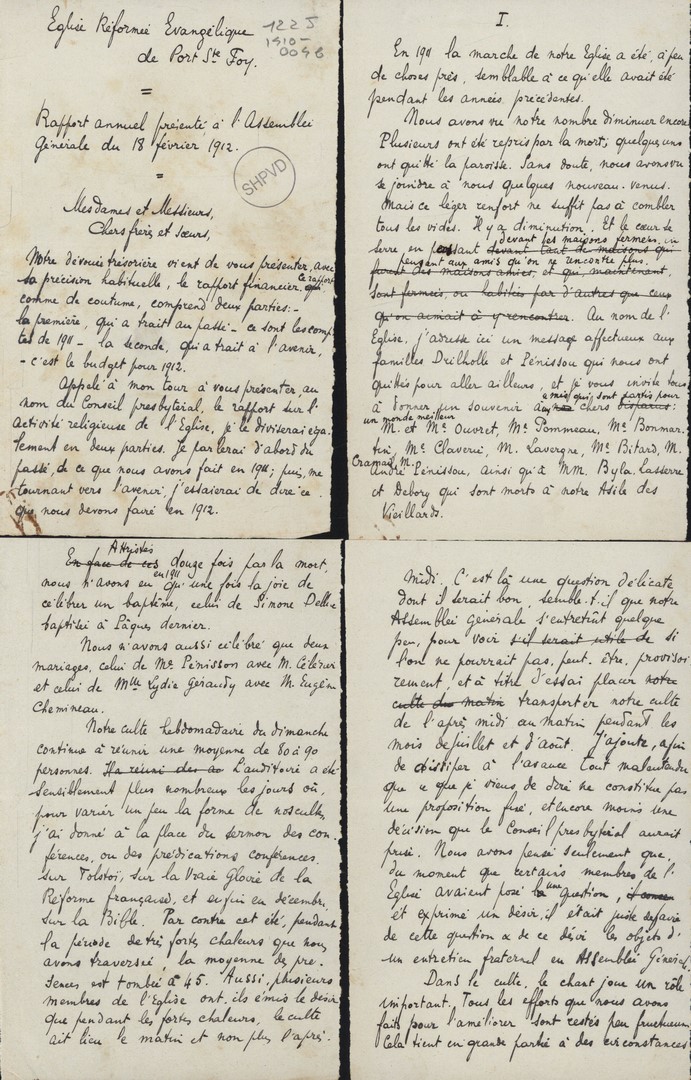 Eglise Réformée Evangélique
de Port Ste Foy.
122J
1910-
0098
=
Rapport annuel présenté à l'Assemblée
Générale du 18 février 1912.
SHPVD
=
Mesdames et Messieurs,
Chers frères et sœurs,
Notre dévouée trésorière vient de vous présenter, avec
sa précision habituelle, le rapport financier. Ce rapport
comme de coutume, comprend deux parties: -
la première, qui a trait au passé - ce sont les comp-
tes de 1911 - la seconde, qui a trait à l'avenir,
- c'est le budget pour 1912.
Appelé à mon tour à vous présenter, au
nom du Conseil presbytéral, le rapport sur l'
Activité religieuse de l'Eglise, je le diviserai éga-
lement en deux parties. Je parlerai d'abord du
passé, de ce que nous avons fait en 1911; puis, me
tournant vers l'avenir, j'essaierai de dire ce
que nous devons faire en 1912.
I.
En 1911 la marche de notre Eglise a été, à peu
de choses près, semblable à ce qu'elle avait été
pendant les années précédentes.
Nous avons vu notre nombre diminuer encore.
Plusieurs ont été repris par la mort; quelques uns
ont quitté la paroisse. Sans doute, nous avons vu
se joindre à nous quelques nouveau-venus.
Mais ce léger renfort ne suffit pas à combler
tous les vides. Il y a diminution. Et le cœur se
devant les maisons fermées, en
serre en passant devant tant de maisons qui
pensant aux amis qu'on ne rencontre plus.
furent des maisons amies, et qui, maintenant,
sont fermées, ou habitées par d'autres que ceux
qu'on aimait à y rencontrer. Au nom de l'
Eglise, j'adresse ici un message affectueux aux
familles Drilholle et Pénissou qui nous ont
quittés pour aller ailleurs, et je vous invite tous
amis qui sont partis pour
à donner un souvenir aux chers disparus:
un monde meilleur
M. et Me Ouvret, Me Pommeau, Me Bonmar-
tin, Me Claverie, M. Lavergne, Me Bitard, M.
Cramad, M.
André Pénissou, ainsi qu'à MM. Byla, Lasserre
et Debory qui sont morts à notre Asile des
Vieillards.
Attristés
En face de ces douze fois par la mort,
en 1911
nous n'avons eu qu'une fois la joie de
célébrer un baptême, celui de Simone Delbe
baptisée à Pâques dernier.
Nous n'avons aussi célébré que deux
mariages, celui de Me Pénissou avec M. Célérier
et celui de Melle Lydie Géraudy avec M. Eugène
Chemineau.
Notre culte hebdomadaire du dimanche
continue à réunir une moyenne de 80 à 90
personnes. Ha réuni des au L'auditoire a été
sensiblement plus nombreux les jours où,
pour varier un peu la forme de nos cultes,
j'ai donné à la place du sermon des con-
férences, ou des prédications conférences.
Sur Tolstoï, sur la Vraie Gloire de la
Réforme française, et enfin en décembre,
sur la Bible. Par contre cet été, pendant
la période de très fortes chaleurs que nous
avons traversée, la moyenne des pré-
sences est tombée à 45. Aussi, plusieurs
membres de l'Eglise ont-ils émis le désir
que pendant les fortes chaleurs, le culte
ait lieu le matin et non plus l'après-
midi. C'est là une question délicate
dont il serait bon, semble-t-il que notre
Assemblée Générale s'entretînt quelque
peu, pour voir s'il serait utile de si
l'on ne pourrait pas, peut-être, provisoi-
rement, et à titre d'essai placer notre
culte du matin transporter notre culte
de l'après midi au matin pendant les
mois de juillet et d'août. J'ajoute, afin
de dissiper à l'avance tout malentendu
que ce que je viens de dire ne constitue pas
une proposition fixe, et encore moins une
décision que le Conseil presbytéral aurait
prise. Nous avons pensé seulement que,
du moment que certains membres de l'
Eglise avaient posé une question,
et exprimé un désir, il était juste de faire
de cette question & de ce désir les objets d'
un entretien fraternel en Assemblée Générale.
Dans le culte, le chant joue un rôle
important. Tous les efforts que nous avons
faits pour l'améliorer sont restés peu fructueux.
Cela tient en grande partie à des circonstances